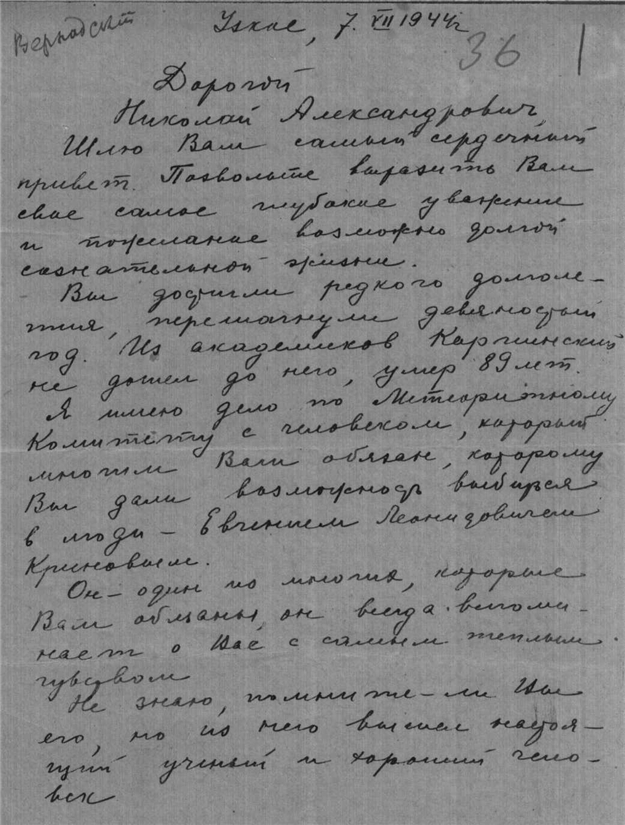 Вернадский
Узкое, 7. VII 1944 г
36
Дорогой
Николай Александрович,
Шлю Вам самый сердечный
привет. Позвольте выразить Вам
свое самое глубокое уважение
и пожелание возможно долгой
сознательной жизни.
Вы достигли редкого долголе-
тия, перешагнули девяностый
год. Из академиков Карпинский
не дошел до него, умер 89 лет.
Я имею дело по Метеоритному
Комитету с человеком, который
многим Вам обязан, которому
Вы дали возможность выбиться
в люди – Евгением Леонидовичем
Криновым.
Он – один из многих, которые
Вам обязаны, он всегда вспоми-
нает о Вас с самым теплым
чувством
Не знаю, помните-ли Вы
его, но из него вышел настоя-
щий ученый и хороший чело-
век